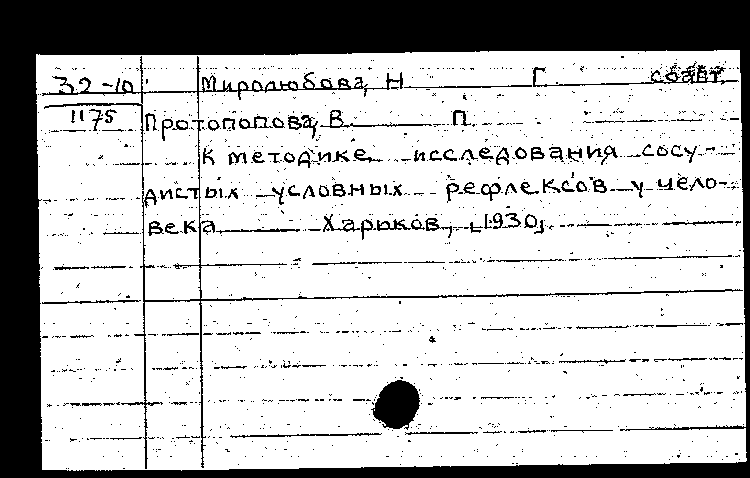 32-10 Миролюбова, Н Г соавт.
1175 Протопопова, В П
К методике исследования сосу-
дистых условных рефлексов у чело-
века Харьков, [1930]